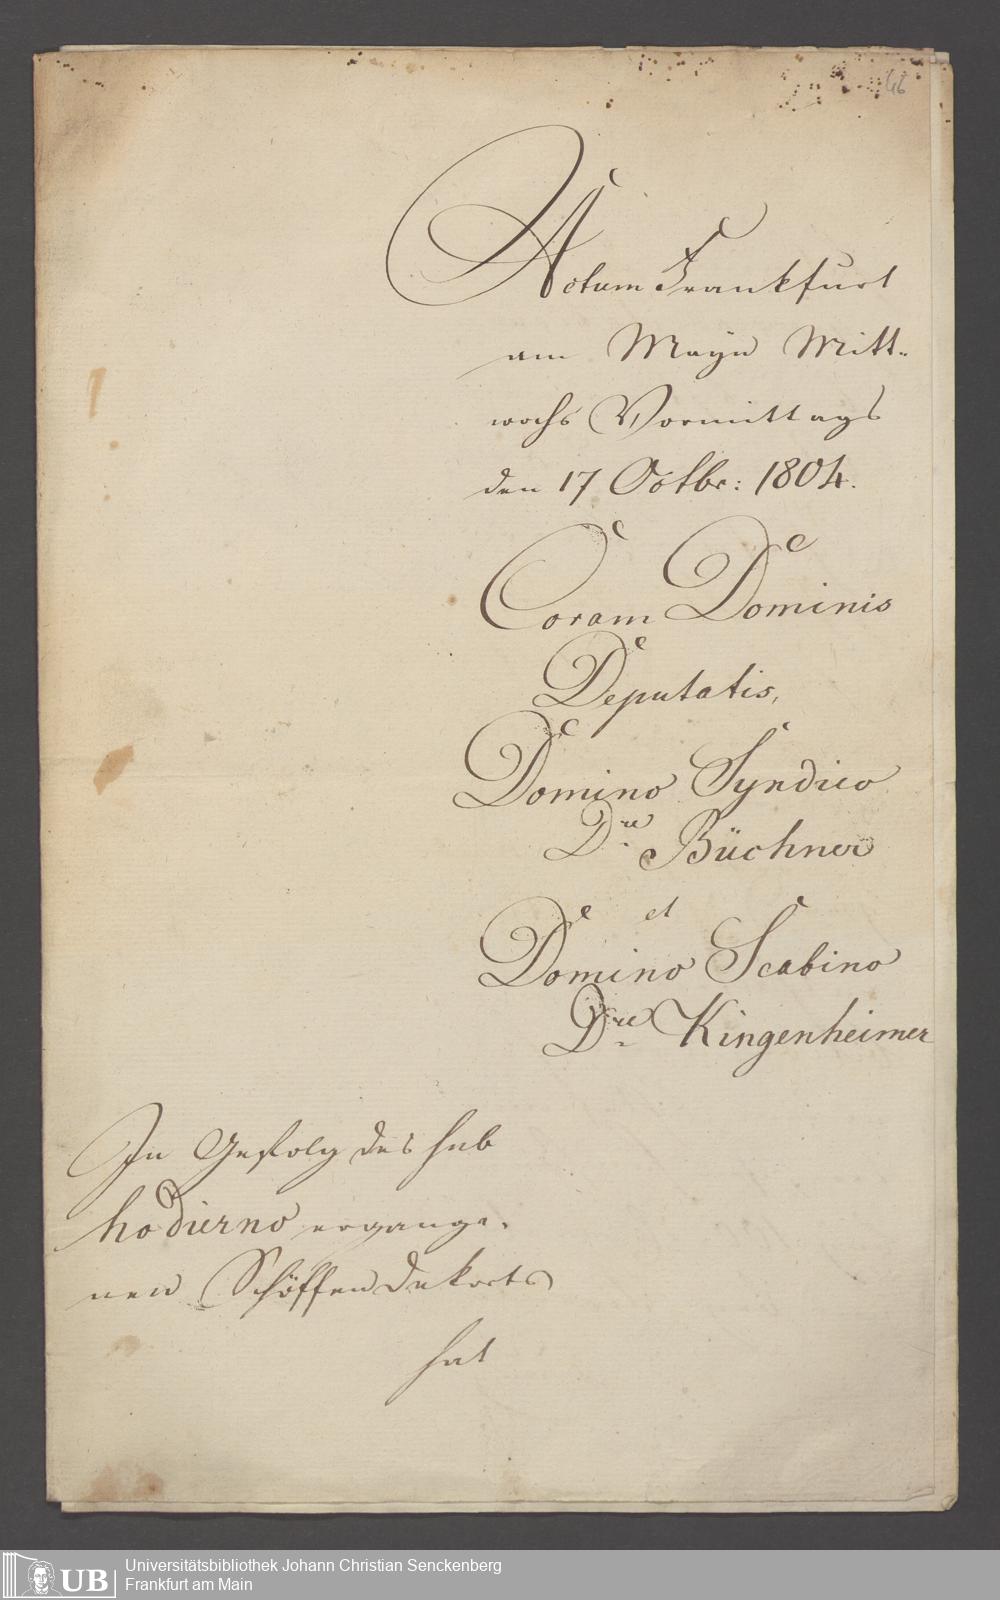 46
Actum Frankfurt
am Mayn Mitt-
wochs Vormittags
den 17 Octbr: 1804.
Coram Dominis
Deputatis,
Domino Syndico
Dre Büchner
et
Domino Scabino
Dre Kingenheimer
In Gefolg des sub
hodierno ergange-
nen Schöffen Dekrets
hat
UB
Universitätsbibliothek Johann Christian Senckenberg
Frankfurt am Main